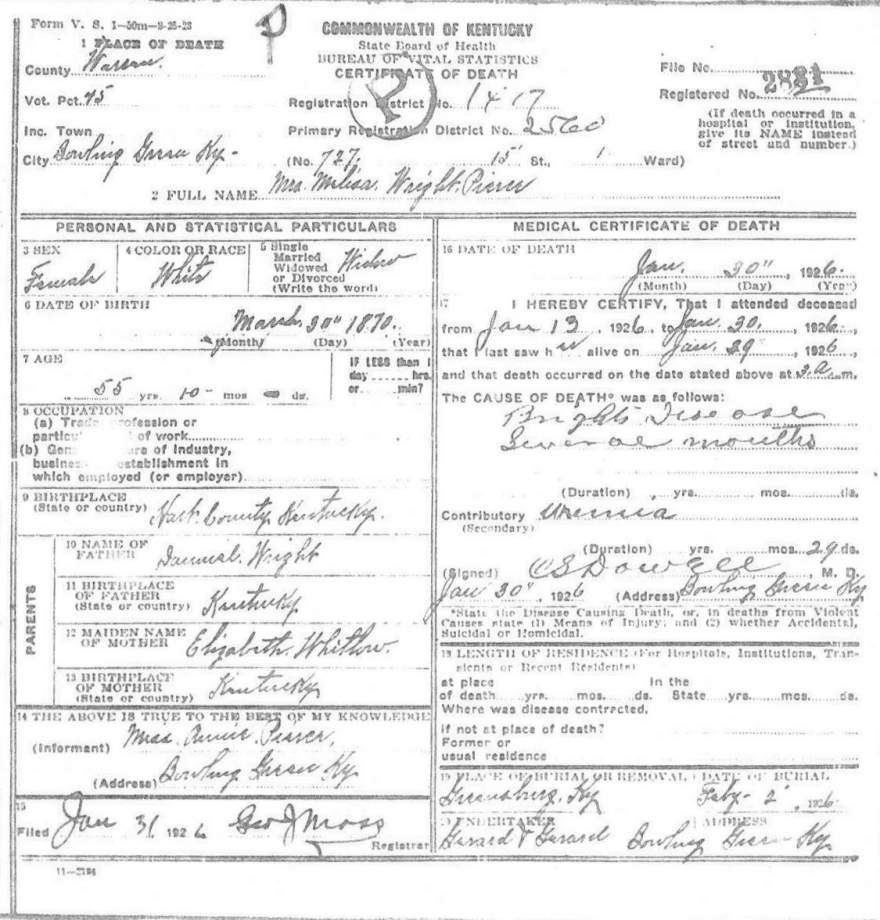 Form V. S. 1-50m-9-25-23
P
COMMONWEALTH OF KENTUCKY
State Board of Health
BUREAU OF VITAL STATISTICS
CERTIFICATE OF DEATH
1 PLACE OF DEATH
County Warren.
Vot. Pct. 75
Inc. Town
City Bowling Green Ky-
File No.
Registered No. 2881
(If death occurred in a
hospital or institution,
give its NAME instead
of street and number.)
Registration District No. 1417
Primary Registration District No. 2560
(No. 727. 15 St., 1 Ward)
2 FULL NAME Mrs. Melisa. Wright Pierce
PERSONAL AND STATISTICAL PARTICULARS
3 SEX
Female
4 COLOR OR RACE
White
5 Single
Married
Widowed
or Divorced
(Write the word)
Widow
6 DATE OF BIRTH
March. 30" 1870.
(Month) (Day) (Year)
7 AGE
55 yrs. 10- mos ds.
IF LESS than 1
day hrs.
or min?
8 OCCUPATION
(a) Trade ofession or
particu of work
(b) Gen re of Industry,
busines establishment in
which employed (or employer)
9 BIRTHPLACE
(State or country) Hart County Kentucky.
PARENTS
10 NAME OF
FATHER Wright
11 BIRTHPLACE
OF FATHER
(State or country) Kentucky
12 MAIDEN NAME
OF MOTHER Elizabeth. Whitlow.
13 BIRTHPLACE
OF MOTHER
(State or country) Kentucky
14 THE ABOVE IS TRUE TO THE BEST OF MY KNOWLEDGE
(Informant) Miss. Annie Pierce,
(Address) Bowling Green Ky
15
Filed Jan 31 1926 Geo J Moss
Registrar
11-2184
MEDICAL CERTIFICATE OF DEATH
16 DATE OF DEATH
Jan. 30", 1926.
(Month) (Day) (Year)
17 I HEREBY CERTIFY, That I attended deceased
from Jan 13, 1926, to Jan. 30., 1926,
that I last saw her alive on Jan. 29", 1926,
and that death occurred on the date stated above at 3 a m.
The CAUSE OF DEATH* was as follows:
Brights Disease
Several months
(Duration) yrs. mos. ds.
Contributory Uremia
(Secondary)
(Duration) yrs. mos. 29 ds.
(Signed) CS Dowell, M. D.
Jan 30", 1926 (Address) Bowling Green Ky
*State the Disease Causing Death, or, in deaths from Violent
Causes state (1) Means of Injury; and (2) whether Accidental,
Suicidal or Homicidal.
18 LENGTH OF RESIDENCE (For Hospitals, Institutions, Tran-
sients or Recent Residents)
at place In the
of death yrs. mos. ds. State yrs. mos. ds.
Where was disease contracted,
if not at place of death?
Former or
usual residence
19 PLACE OF BURIAL OR REMOVAL DATE OF BURIAL
Greensburg, Ky Feby- 2", 1926
20 UNDERTAKER ADDRESS
Gerard & Gerard Bowling Green Ky